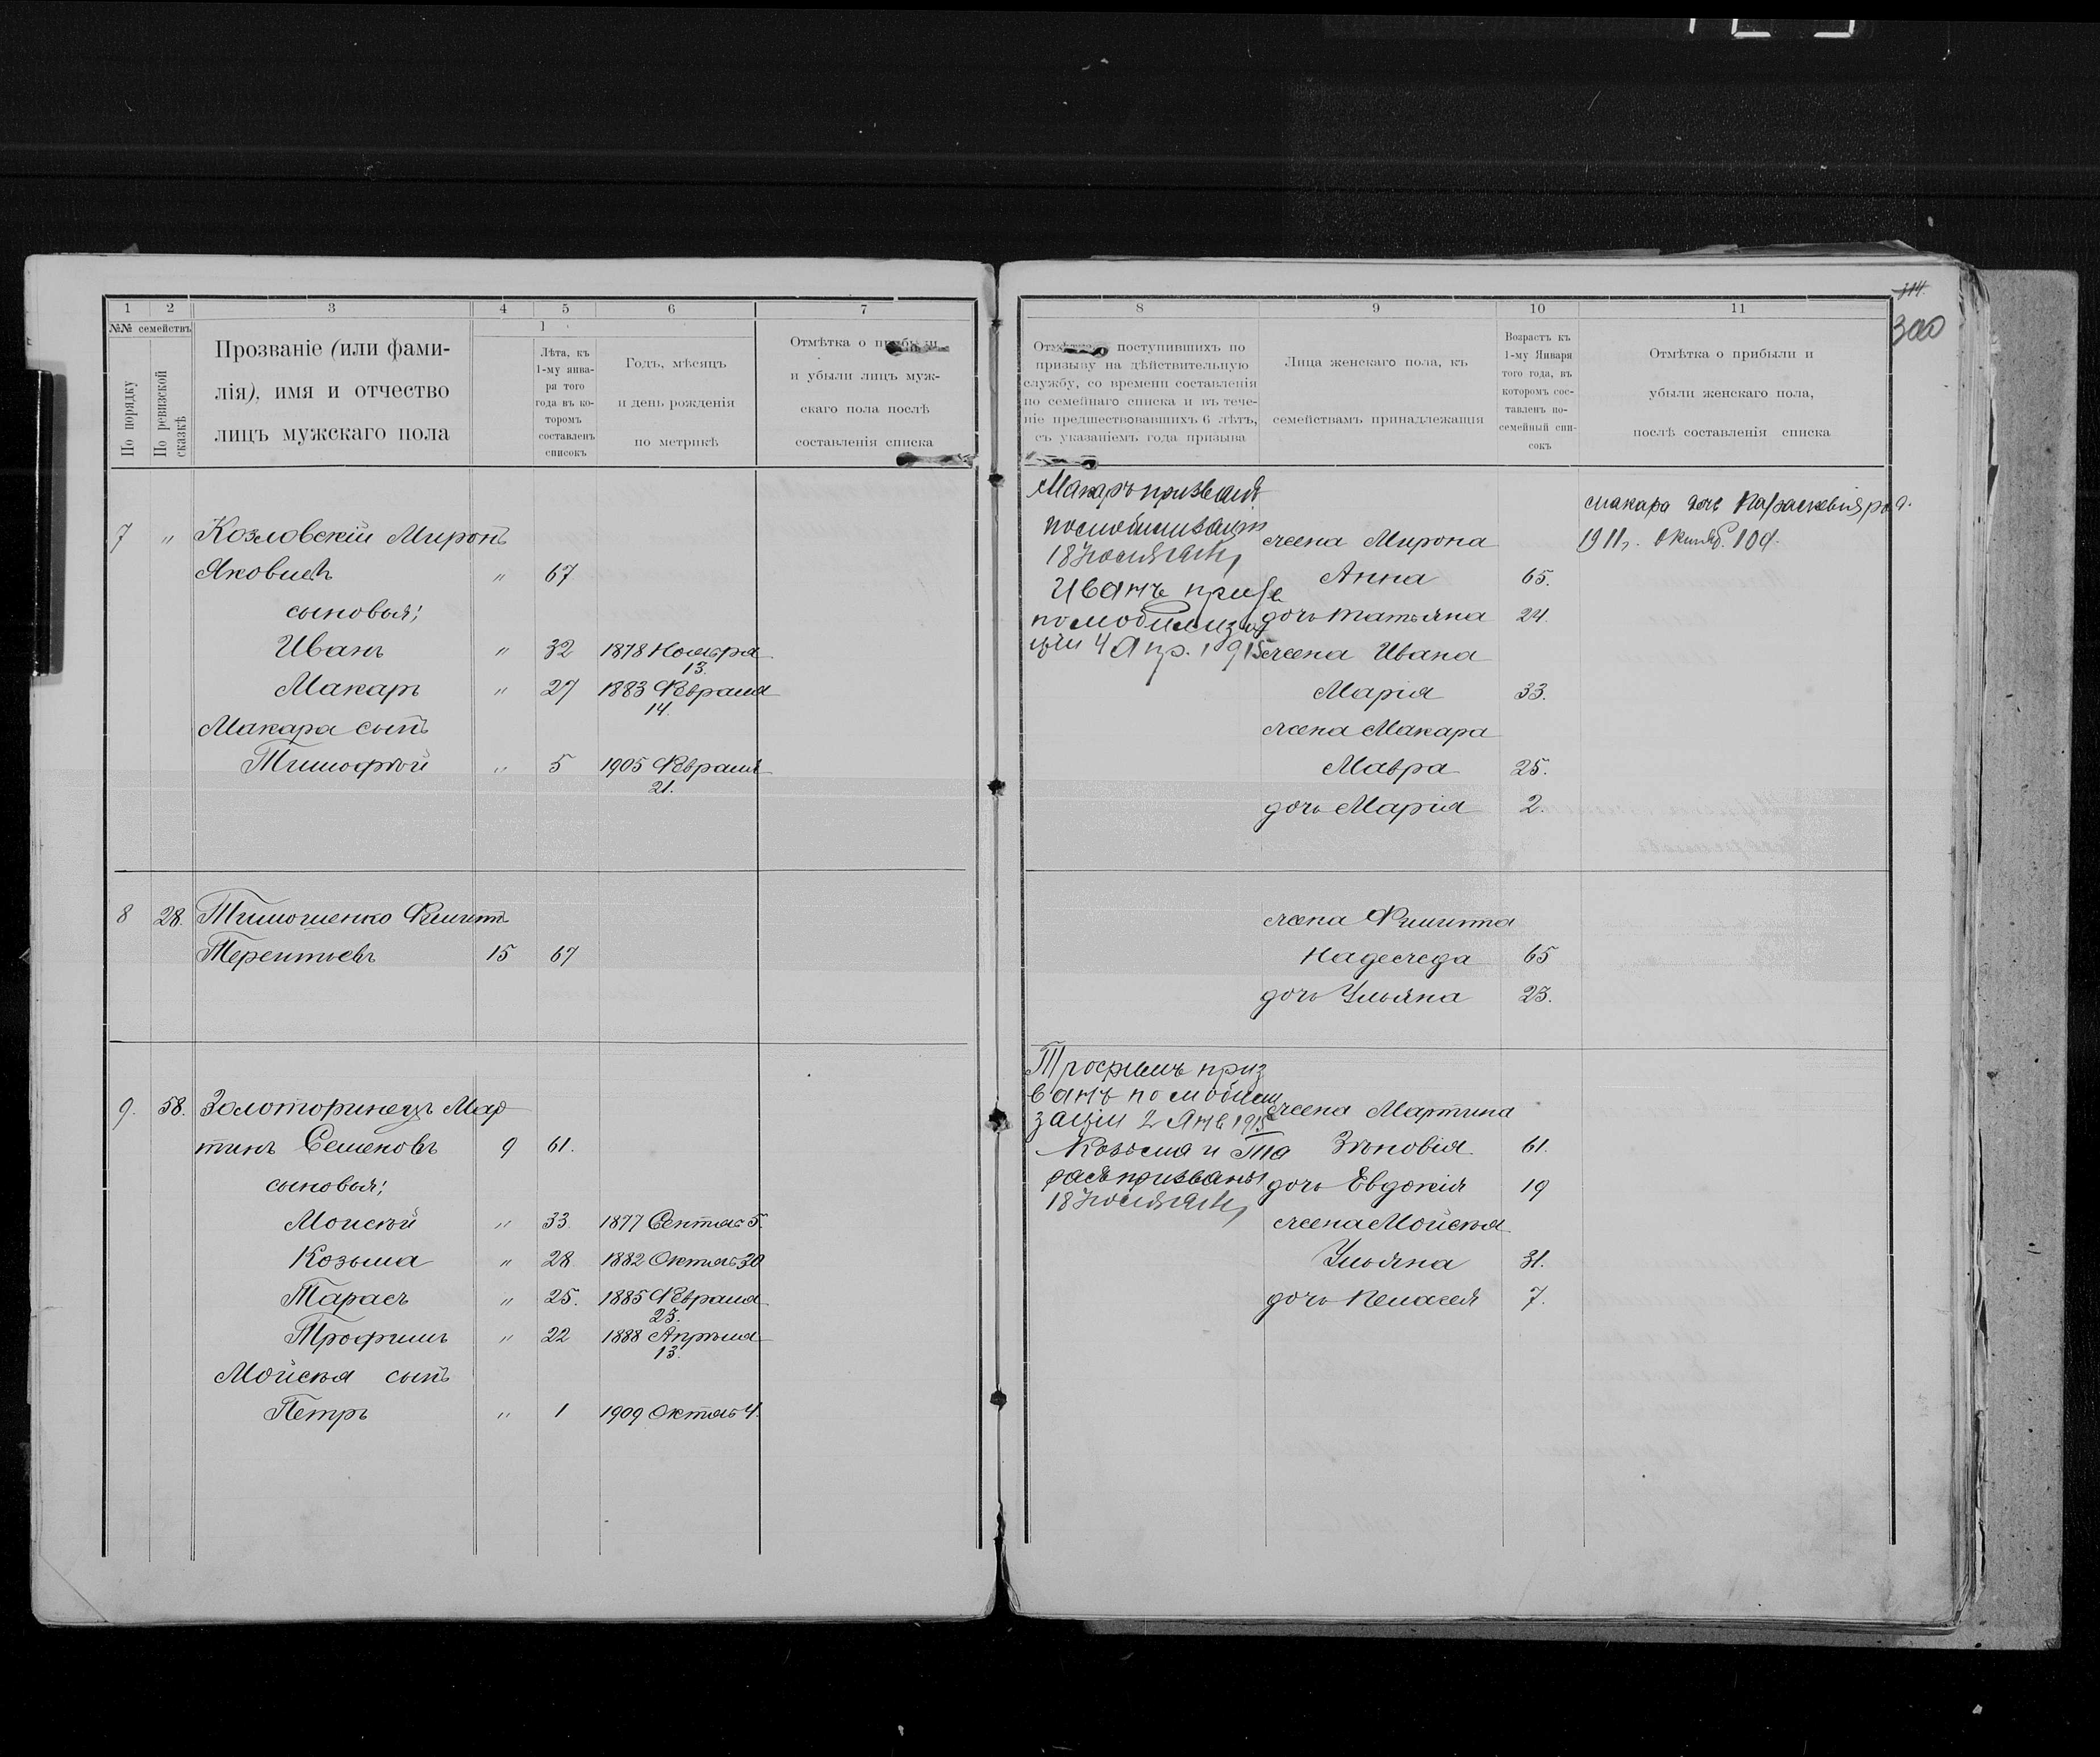 114.
300
1 2 3 4 5 6 7
№№ семействъ
По порядку
По ревизской сказкѣ
Прозваніе (или фами-
лія), имя и отчество
лицъ мужскаго пола
1
Лѣта, къ
1-му янва-
ря того
года въ ко-
торомъ
составленъ
списокъ
Годъ, мѣсяцъ
и день рожденія
по метрикѣ
Отмѣтка о прибыли
и убыли лицъ муж-
скаго пола послѣ
составленія списка
7 " Козловскій Миронъ
Яковлевъ " 67
сыновья:
Иванъ " 32 1878 Ноября
13.
Макаръ " 27 1883 Февраля
14.
Макара сынъ
Тимофѣй " 5 1905 Февраля
21.
8 28. Тимошенко Филиппъ
Терентьевъ 15 67
9. 58. Золоторинецъ Мар
тинъ Семеновъ 9 61.
сыновья:
Моисѣй " 33. 1877 Сентяб 5.
Козьма " 28 1882 Октяб 30
Тарасъ " 25. 1885 Февраля
23.
Трофимъ " 22 1888 Апрѣля
13.
Мойсѣя сынъ
Петръ " 1 1909 Октяб 4.
8 9 10 11
поступившихъ по
призыву на дѣйствительную
службу, со времени составленія
по семейнаго списка и въ тече-
ніе предшествовавшихъ 6 лѣтъ,
съ указаніемъ года призыва
Лица женскаго пола, къ
семействамъ принадлежащія
Возрастъ къ
1-му Января
того года, въ
которомъ сос-
тавленъ по-
семейный спи-
сокъ
Отмѣтка о прибыли и
убыли женскаго пола,
послѣ составленія списка
Макаръ призванъ
по мобилизаціи
18
Иванъ призв
по мобилиза
ціи 4 Апр. 1915
жена Мирона
Анна 65.
дочь Татьяна 24.
жена Ивана
Марія 33.
жена Макара
Мавра 25.
дочь Марія 2.
Макара дочь Параскевія род.
1911г. Октяб. 10д.
жена Филиппа
Надежда 65
дочь Ульяна 23.
Трофимъ приз
ванъ по мобили
заціи 2 Янв 1915
Козьма и Та
расъ призваны
18
жена Мартина
Зѣновія 61.
дочь Евдокія 19
жена Мойсѣя
Ульяна 31.
дочь Пелагея 7.